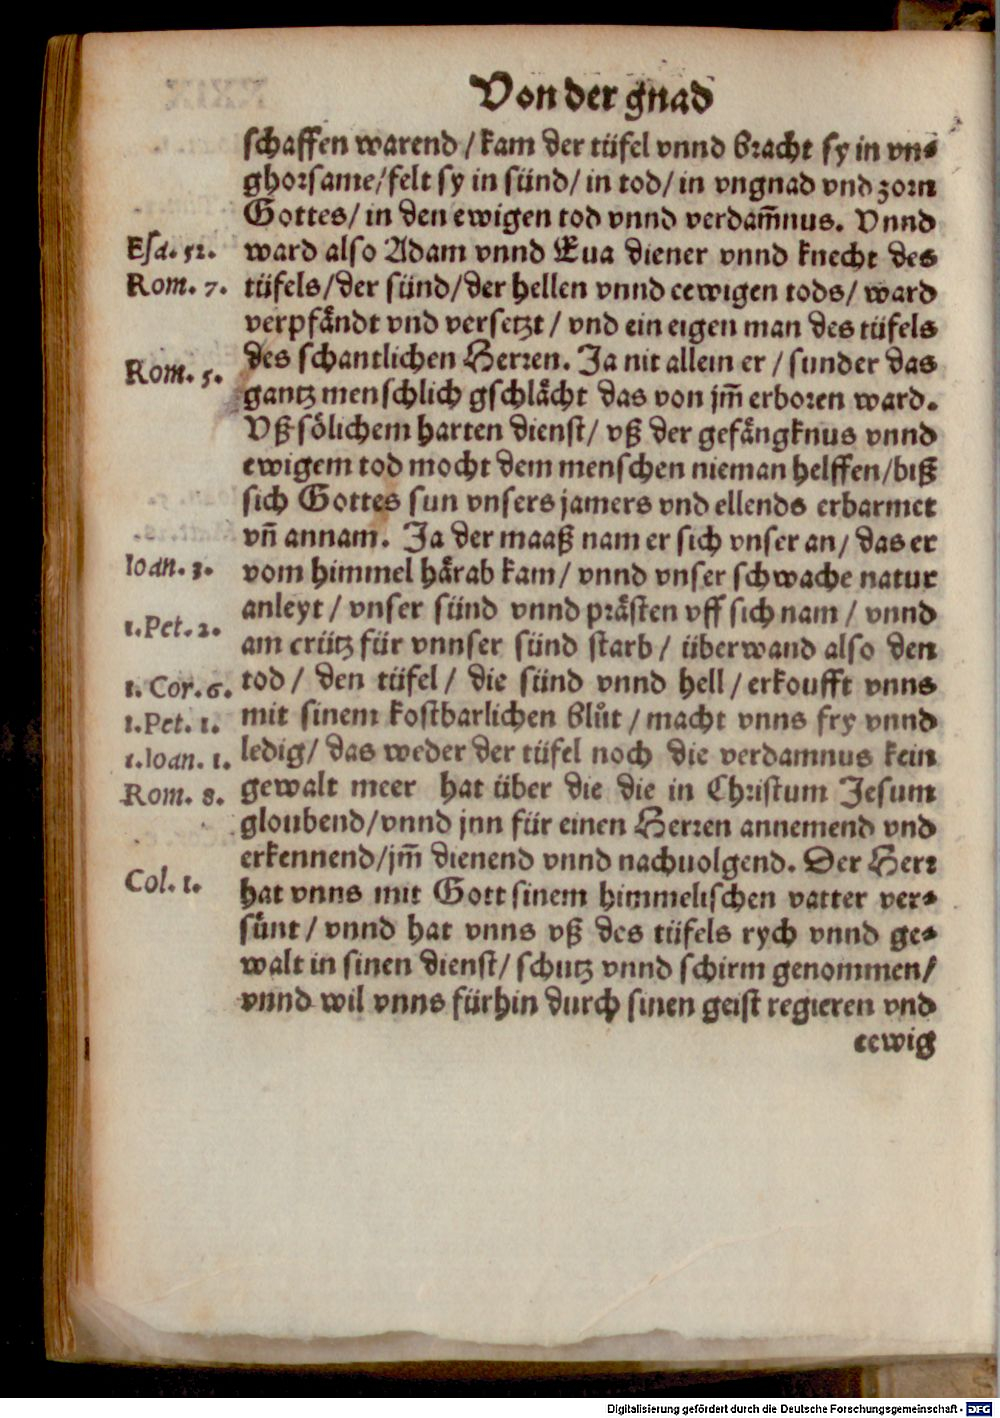 Von der gnad
schaffen warend / kam der tüfel vnnd bracht sy in vn-
ghorsame/felt sy in sünd/ in tod/ in vngnad vnd zorn
Gottes/ in den ewigen tod vnnd verdam̄nus. Vnnd
Esa. 52. ward also Adam vnnd Eua diener vnnd knecht des
Rom. 7. tüfels/der sünd/der hellen vnnd eewigen tods/ ward
verpfåndt vnd versetzt / vnd ein eigen man des tüfels
Rom. 5. des schantlichen Herren. Ja nit allein er / sunder das
gantz menschlich gschlåcht das von jm̄ erboren ward.
Vß sôlichem harten dienst/ vß der gefångknus vnnd
ewigem tod mocht dem menschen nieman helffen/biß
sich Gottes sun vnsers jamers vnd ellends erbarmet
vn̄ annam. Ja der maaß nam er sich vnser an/ das er
Ioan. 3. vom himmel hårab kam/ vnnd vnser schwache natur
anleyt / vnser sünd vnnd pråsten vff sich nam / vnnd
1.Pet. 2. am crütz für vnnser sünd starb / überwand also den
1. Cor. 6. tod / den tüfel / die sünd vnnd hell / erkoufft vnns
1.Pet. 1. mit sinem kostbarlichen blůt / macht vnns fry vnnd
1.Ioan. 1. ledig/ das weder der tüfel noch die verdamnus kein
Rom. 8. gewalt meer hat über die die in Christum Jesum
gloubend/vnnd jnn für einen Herren annemend vnd
erkennend/jm̄ dienend vnnd nachuolgend. Der Herr
Col. 1. hat vnns mit Gott sinem himmelischen vatter ver-
sünt / vnnd hat vnns vß des tüfels rych vnnd ge-
walt in sinen dienst/ schutz vnnd schirm genommen/
vnnd wil vnns fürhin durch sinen geist regieren vnd
eewig
Digitalisierung gefördert durch die Deutsche Forschungsgemeinschaft - DFG